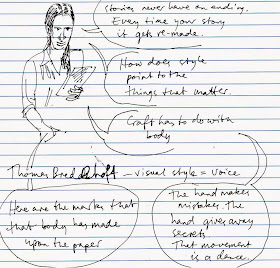 Stories never have an ending.
Every time your story
it gets re-made.
How does style
point to the
things that matter.
Craft has to do with
body
Thomas Bredehoft – visual style = voice
Here are the marks that
that body has made
upon the paper
The hand makes
mistakes. The
hand gives away
secrets
That movement
is a dance.